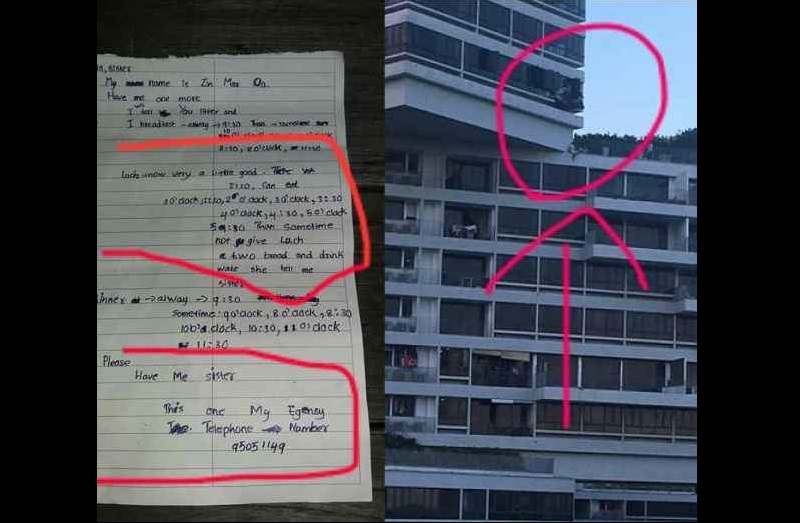 , sister
My name is Zin Mar Oo.
Have me one more
I You later and
I breadfast - alway → 9:30 Than → sometime
o'clock
8:30, 8 o'clock, 11:30
Lach now very a little good. There
2:30, can eat
20'clock, 2:30, 20'clock, 30'clock, 3:30
40'clock, 4:30, 50'clock
5:30 Than Sometime
not give Lach
a two bread and drink
wate she tell me
sister
inner → alway → 9:30
Sometime: 90'clock, 80'clock, 8:30
100'clock, 10:30, 110'clock
11:30
Please
Have Me sister
This one My Egensy
Telephone Number
95051149